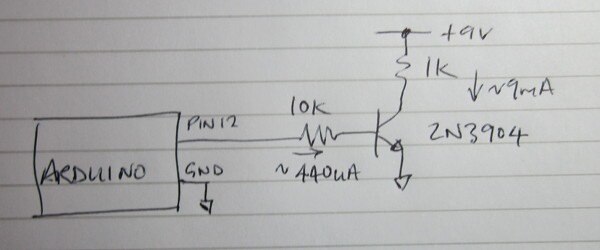 +9V
1K
~9mA
10K
PIN12
2N3904
ARDUINO
GND
~440uA